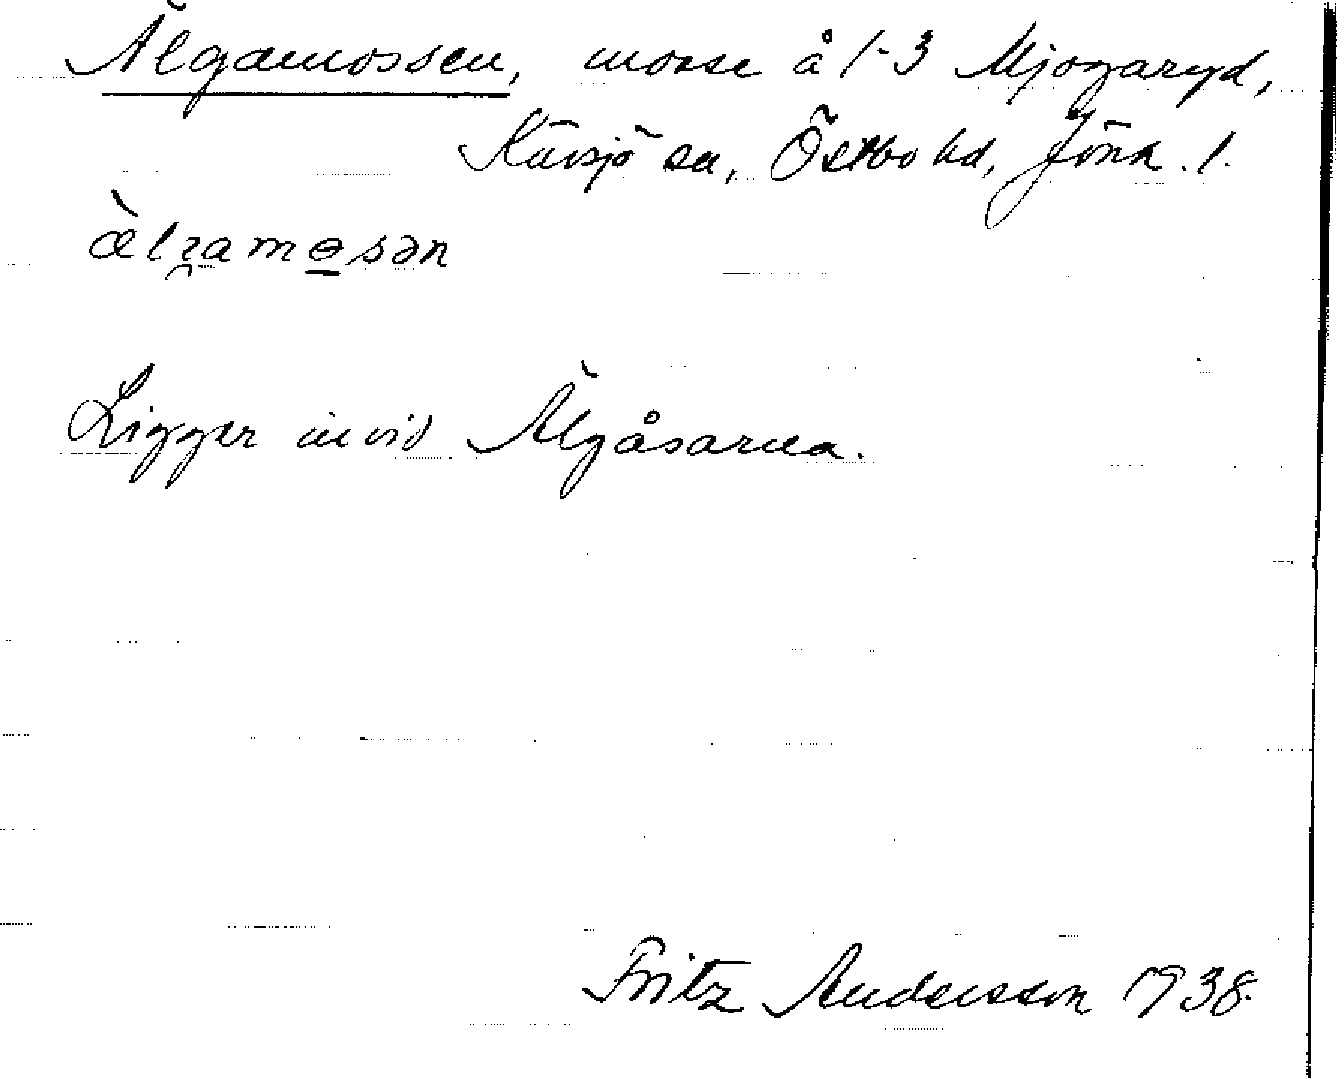 Älgamossen, mosse å 1-3 Mjogaryd,
Kävsjö sn, Östbo hd, Jönk. l.
Ligger invid Älgåsarna.
Fritz Andersson 1938.